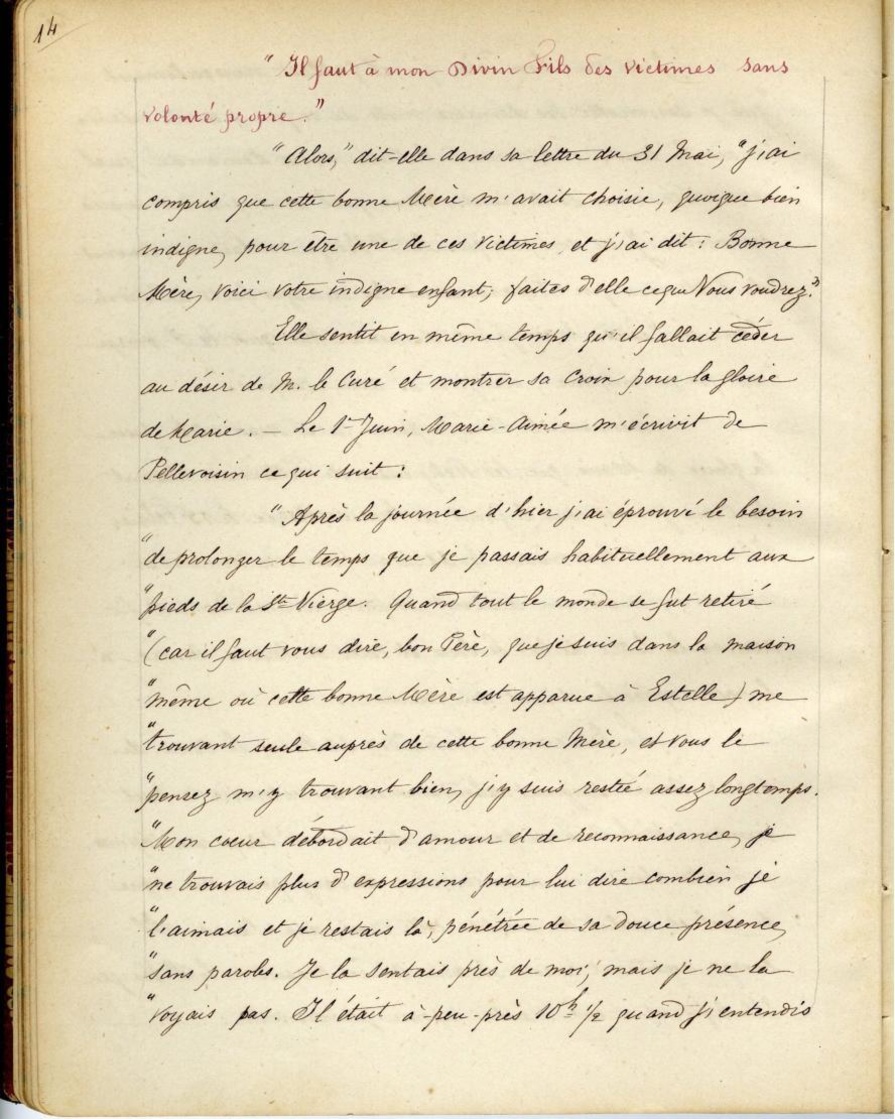 14
" Il faut à mon Divin Fils des victimes sans
volonté propre."
"Alors," dit-elle dans sa lettre du 31 Mai, "j'ai
compris que cette bonne Mère m'avait choisie, quoique bien
indigne, pour être une de ces victimes, et j'ai dit : Bonne
Mère, voici votre indigne enfant; faites d'elle ce que Vous voudrez."
Elle sentit en même temps qu'il fallait céder
au désir de M. le Curé et montrer sa croix pour la gloire
de Marie. — Le 1er Juin, Marie-Aimée m'écrivit de
Pellevoisin ce qui suit :
" Après la journée d'hier j'ai éprouvé le besoin
" de prolonger le temps que je passais habituellement aux
" pieds de la Ste Vierge. Quand tout le monde se fut retiré
" (car il faut vous dire, bon Père, que je suis dans la maison
" même où cette bonne Mère est apparue à Estelle) me
" trouvant seule auprès de cette bonne Mère, et vous le
" pensez m'y trouvant bien, j'y suis restée assez longtemps.
" Mon coeur débordait d'amour et de reconnaissance, je
" ne trouvais plus d'expressions pour lui dire combien je
" l'aimais et je restais là, pénétrée de sa douce présence,
" sans paroles. Je la sentais près de moi; mais je ne la
" voyais pas. Il était à-peu-près 10h 1/2 quand j'entendis